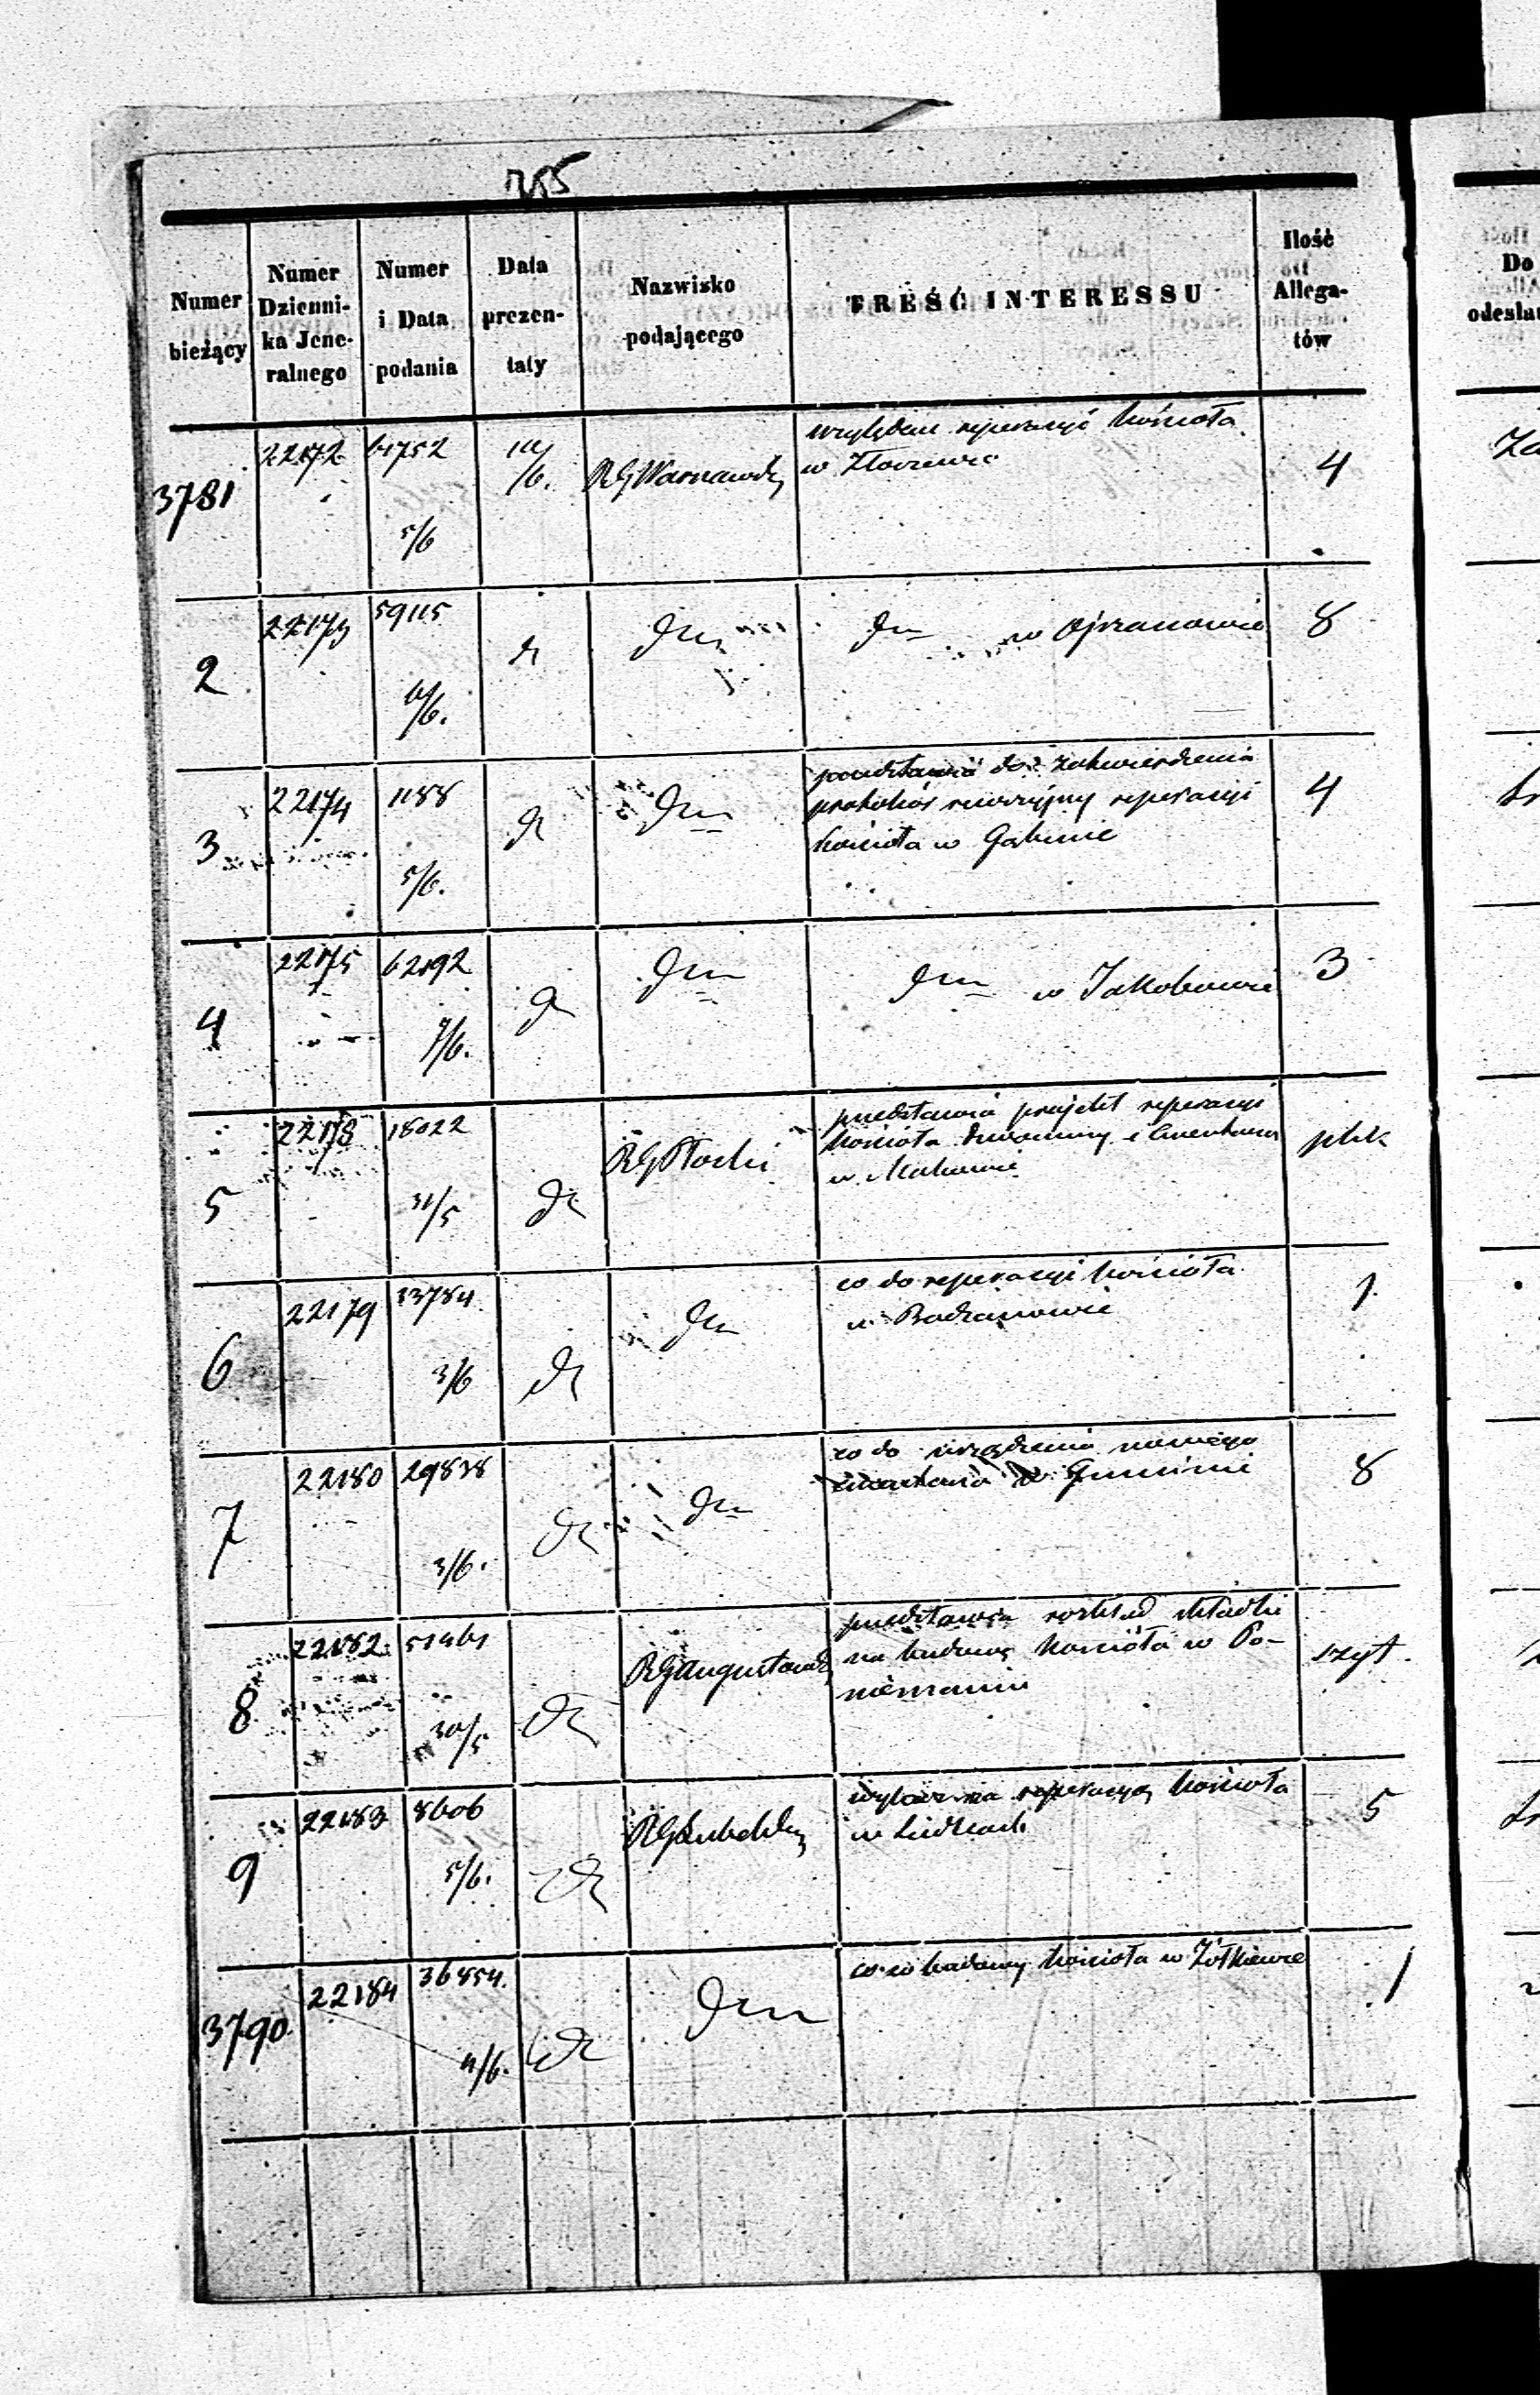 755
Numer bieżący
Numer Dzienni-ka Jene-ralnego
Numer i Data podania
Data prezen-taty
Nazwisko podającego
TREŚĆ INTERESSU
Ilość Allega-tów
Do odesłan
3781 22172 61752 5/6 10/6. RG Warszawski
względem reperacyi kościoła
w Złoczewie 4
2 22173 59115 6/6. dt dtto dtto w Ojrzanowie 8
3 22174 1188 5/6. dt dtto
przedstawia do zatwierdzenia
protokół rewizyjny reperacyi
kościoła w Gąbinie 4
4 22175 62192 7/6. dt dtto dtto w Jakobowie 3
5 22178 18022 31/5 dt RG Płocki
przedstawia projekt reperacyi
kościoła dzwonnicy i Cmentarza
w Makowie plik
6 22179 33784 3/6 dt dtto
co do reperacyi kościoła
w Radzanowie 1
7 22180 29838 3/6. dt dtto
co do urządzenia nowego
cmentarza w Guminie 8
8 22182 51461 30/5 dt RG Augustowski
przedstawia rozkład składki
na budowę kościoła w Po-
niemoniu szyt.
9 22183 8606 5/6. dt RG Lubelski
reperacyą kościoła
w 5
3790 22184 36854. 4/6. dt dtto
co do budowy kościoła w Żółkiewce 1